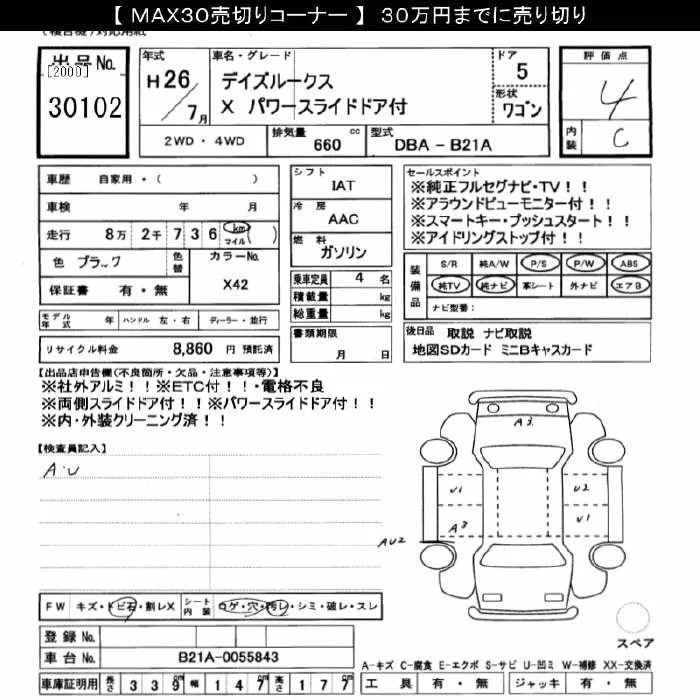 【 MAX30売切りコーナー 】 30万円までに売り切り
出品No.
[2000]
30102
年式
H26/7月
車名・グレード
デイズルークス
X パワースライドドア付
ドア
5
形状
ワゴン
評価点
4
内装
C
2WD・4WD
排気量 660 cc
型式 DBA－B21A
車歴 自家用・( )
車検 年 月
走行 8万 2千 7 3 6 (km マイル)
色 ブラック
色替
カラーNo.
X42
保証書 有・無
モデル年式 年 ハンドル 左・右 ディーラー・並行
リサイクル料金 8,860 円 預託済
シフト
IAT
冷房
AAC
燃料
ガソリン
乗車定員 4 名
積載量 kg
総重量 kg
書類期限
月 日
セールスポイント
※純正フルセグナビ・TV！！
※アラウンドビューモニター付！！
※スマートキー・プッシュスタート！！
※アイドリングストップ付！！
装備品
S/R 純A/W P/S P/W ABS
純TV 純ナビ 革シート 外ナビ エアB
ナビ型番：
後日品 取説 ナビ取説
地図SDカード ミニBキャスカード
【出品店申告欄(不良箇所・欠品・注意事項等)】
※社外アルミ！！※ETC付！！・電格不良
※両側スライドドア付！！※パワースライドドア付！！
※内・外装クリーニング済！！
【検査員記入】
A・U
A3
U1
U2
A3
U1
AU2
スペア
FW キズ・トビ石・割レX
シート内装 コゲ・穴・汚レ・シミ・破レ・スレ
登録No.
車台No. B21A-0055843
車庫証明用 長さ 3 3 9 cm 幅 1 4 7 cm 高さ 1 7 7 cm
A-キズ C-腐食 E-エクボ S-サビ U-凹ミ W-補修 XX-交換済
工具 有・無 ジャッキ 有・無